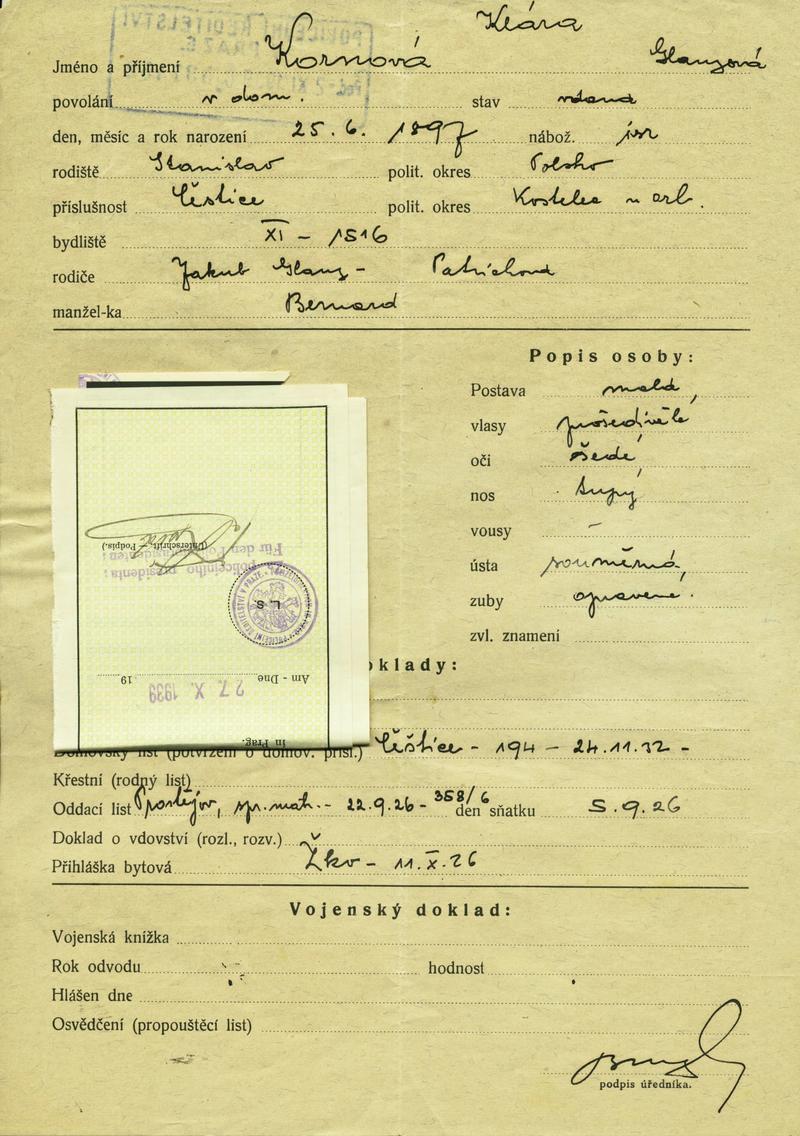 Klára
Jméno a příjmení Kornová Glanzová
povolání v dom. stav vdaná
den, měsíc a rok narození 25. 6. 1897 nábož. isr
rodiště Stanislav polit. okres Polsko
příslušnost Čestice polit. okres Kostelec n orl.
bydliště XI – 1516
rodiče Jakub Glanz –
manžel-ka Bernard
Popis osoby:
Postava malá,
vlasy prošedivělé
oči šedé
nos tupý
vousy –
ústa souměrná,
zuby opravené.
zvl. znamení
oklady:
In Prag.
Am - Dne 27. X. 1939 19
L. S.
POLICEJNÍ ŘEDITELSTVÍ V PRAZE
policejního presidenta:
Für den Polizeipräsidenten:
(Unterschrift, - Podpis.)
Domovský list (potvrzení o domov. přísl.) Čestice - 194 - 24.11.32 -
Křestní (rodný list)
Oddací list Prostějov, 22.9.26 - 358/6 den sňatku 5.9.26
Doklad o vdovství (rozl., rozv.)
Přihláška bytová Žkov - 11.X.26
Vojenský doklad:
Vojenská knížka
Rok odvodu hodnost
Hlášen dne
Osvědčení (propouštěcí list)
podpis úředníka.